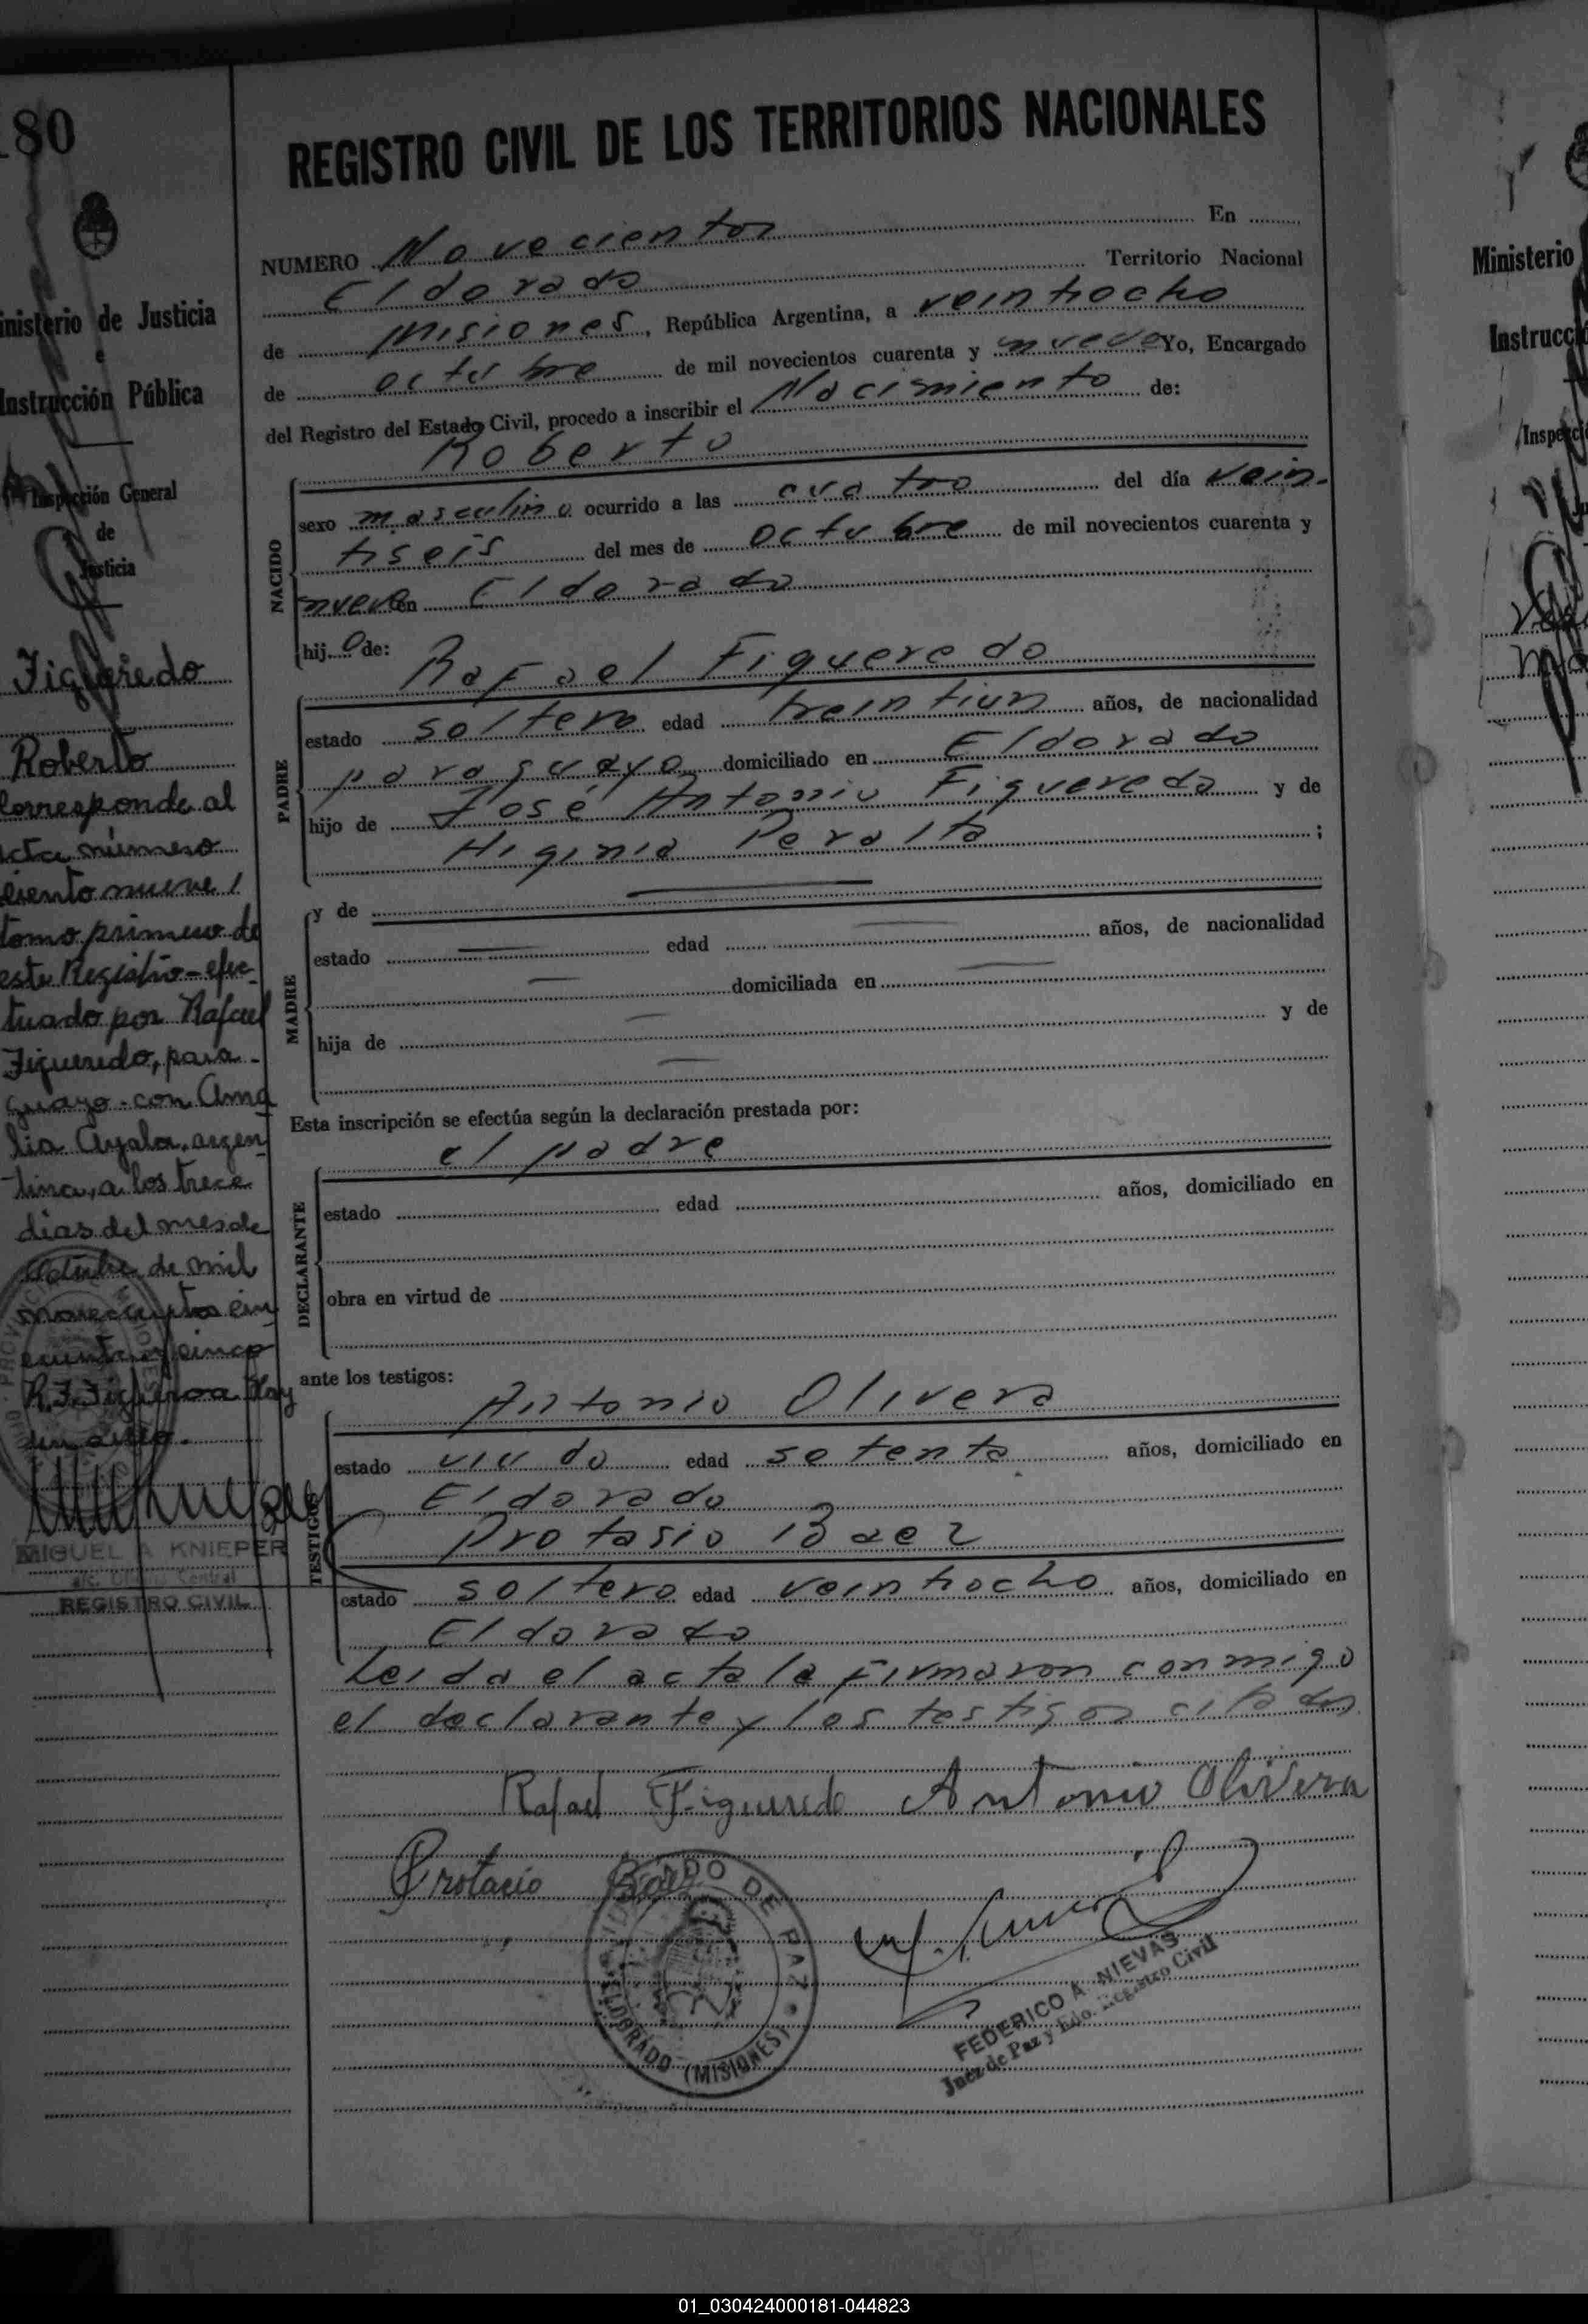 180
Ministerio de Justicia
e
Instrucción Pública
Inspección General
de
Justicia
Figueredo
Roberto
Corresponde al
acta número
ciento nueve /
tomo primero de
este Registro - efec-
tuado por Rafael
Figueredo, para-
guayo - con Ama
lia Ayala, argen
tina, a los trece
dias del mes de
Octubre de mil
novecientos cin
cuenta y cinco
MIGUEL A KNIEPER
REGISTRO CIVIL
REGISTRO CIVIL DE LOS TERRITORIOS NACIONALES
NUMERO Novecientos En
Eldorado Territorio Nacional
de Misiones, República Argentina, a veintiocho
de octubre de mil novecientos cuarenta y nueve Yo, Encargado
del Registro del Estado Civil, procedo a inscribir el Nacimiento de:
Roberto
NACIDO
sexo masculino ocurrido a las cuatro del día vein-
tiseis del mes de octubre de mil novecientos cuarenta y
nueve en Eldorado
hijo de:
Rafael Figueredo
PADRE
estado soltero edad treintiun años, de nacionalidad
paraguayo domiciliado en Eldorado
hijo de José Antonio Figueredo y de
Higinia Peralta ;
MADRE
y de
estado edad años, de nacionalidad
domiciliada en
hija de y de
Esta inscripción se efectúa según la declaración prestada por:
el padre
DECLARANTE
estado edad años, domiciliado en
obra en virtud de
ante los testigos:
Antonio Olivera
TESTIGOS
estado viudo edad setenta años, domiciliado en
Eldorado
Protasio Baez
estado soltero edad veintiocho años, domiciliado en
Eldorado
Leida el acta la firmaron conmigo
el declarante y los testigos citados
Rafael Figueredo Antonio Olivera
Protacio Baez
JUZGADO DE PAZ
ELDORADO (MISIONES)
FEDERICO A. NIEVAS
Juez de Paz y Edo. Registro Civil
Ministerio
01_030424000181-044823